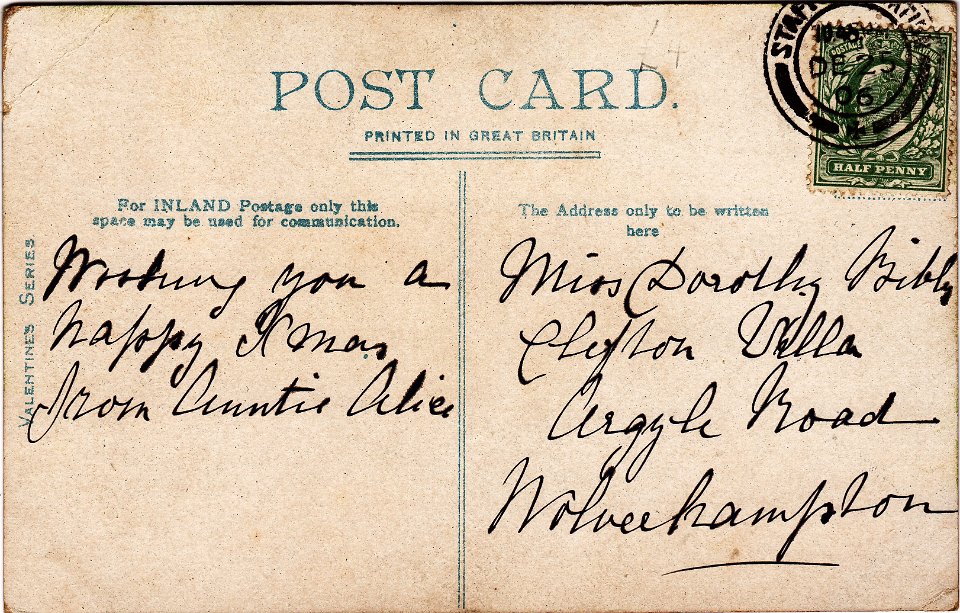 POST CARD.
PRINTED IN GREAT BRITAIN
For INLAND Postage only this
space may be used for communication.
The Address only to be written
here
VALENTINE'S SERIES
HALF PENNY
POSTAGE
DE 25
06
you a
happy Xmas
from Auntie Alice
Miss Dorothy Bibby
Clifton Villa
Argyle Road
Wolverhampton